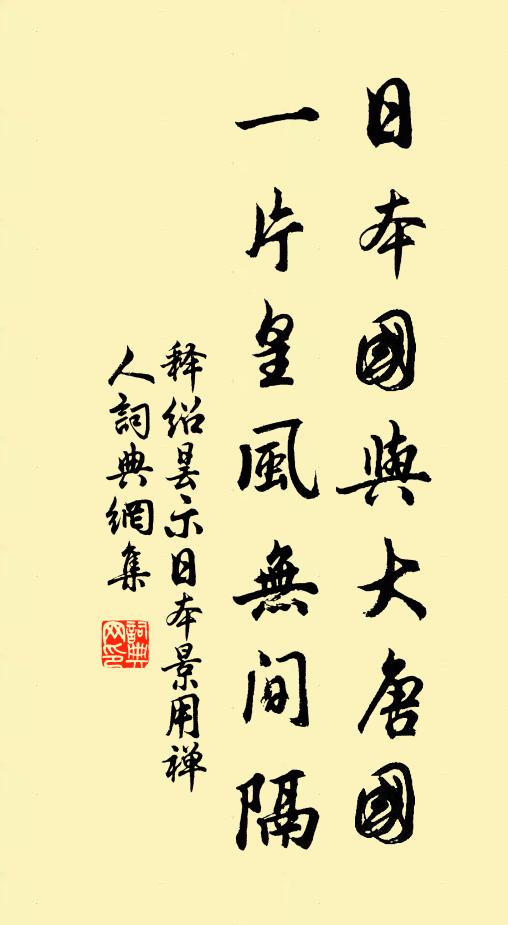 日本國與大唐國
一片皇風無間隔
释绍昙示日本景用禅
人詞典網集
詞典网印